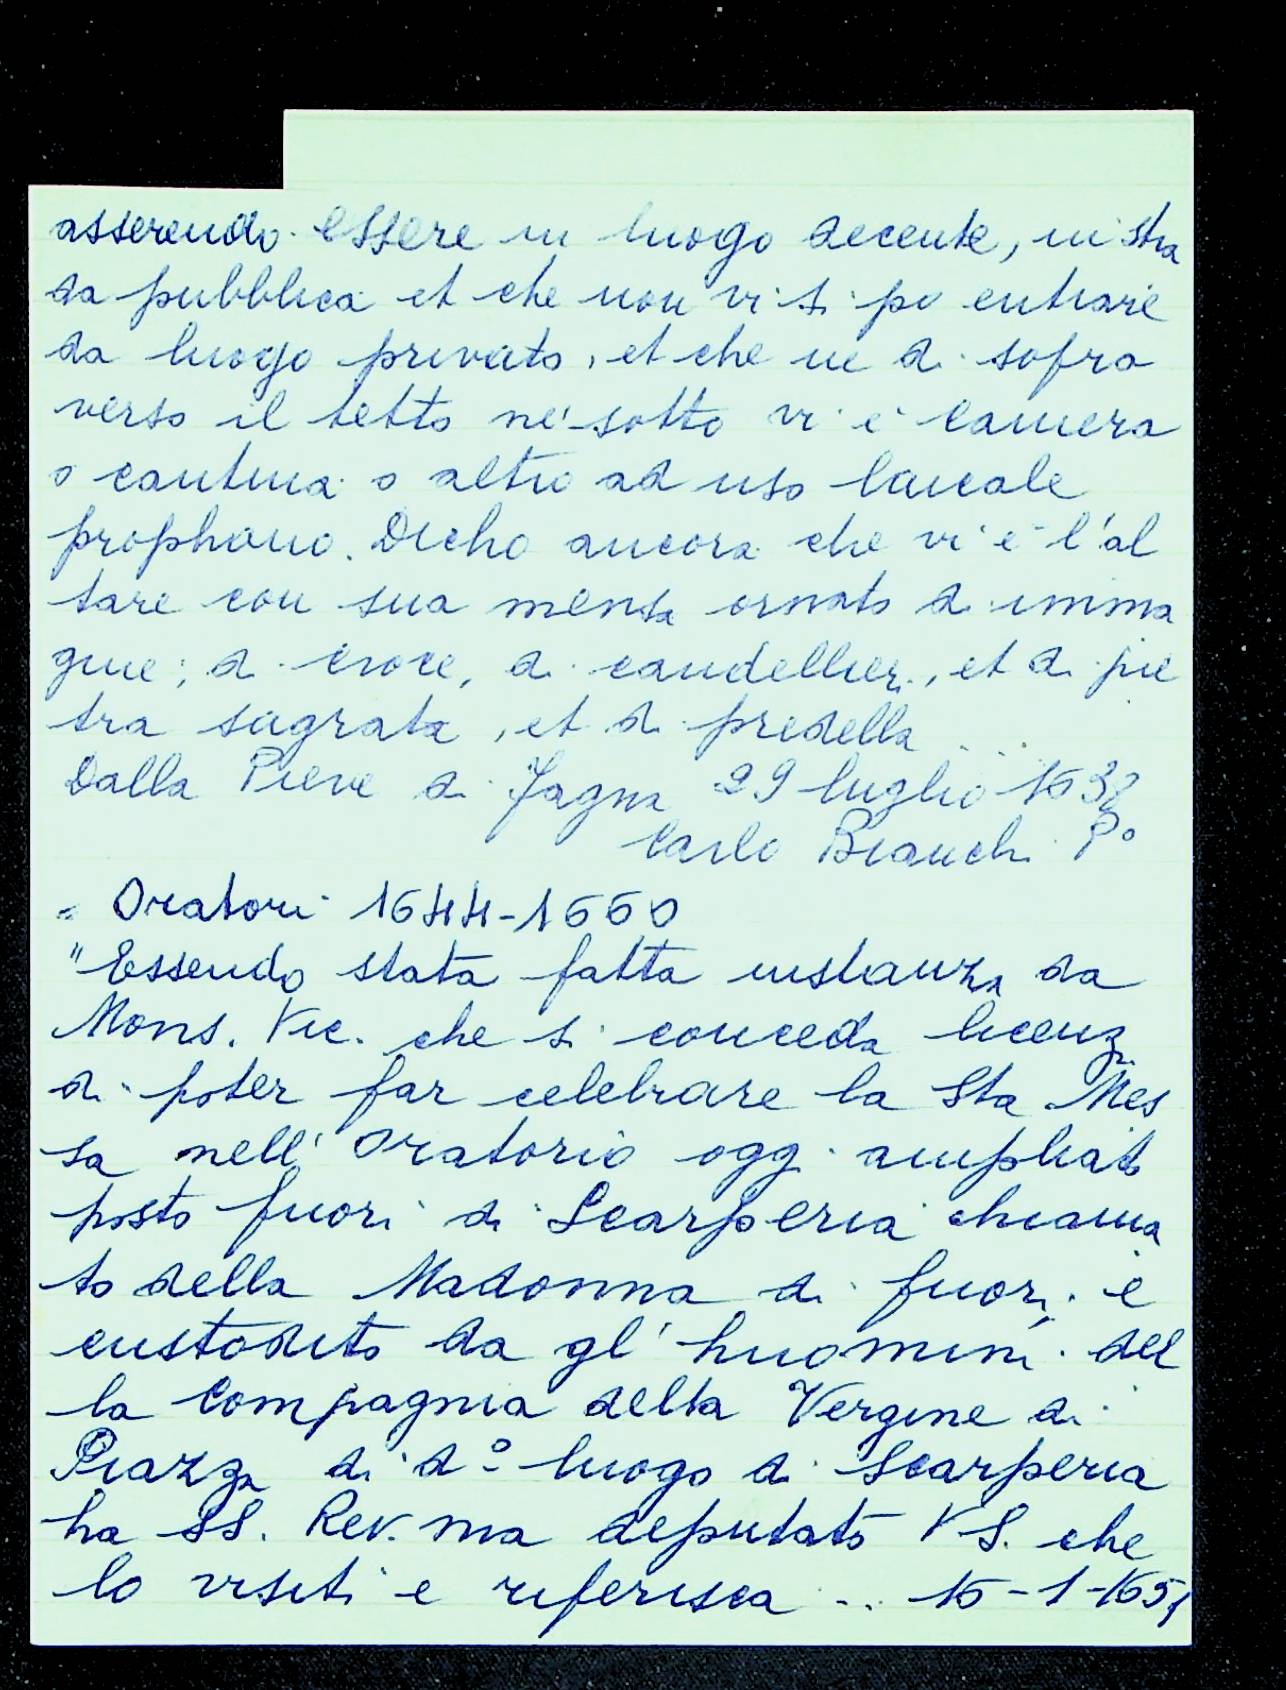 asserendo essere in luogo decente, in stra
da pubblica et che non vi si po entrare
da luogo privato, et che ne di sopra
verso il tetto nè sotto vi è camera
o cantina o altro ad uso laicale
prophano. Dicho ancora che vi è l'al
tare con sua mensa ornato di imma
gine, di croce, di candellieri, et di pie
tra sagrata, et di predella ...
Dalla Pieve di Fagna 29 luglio 1638
Carlo Bianchi P°
" Oratori 1644-1660
"Essendo stata fatta instanza da
Mons. Vic. che si conceda licenza
di poter far celebrare la Sta Mes
sa nell'Oratorio oggi ampliato
posto fuori di Scarperia chiama
to della Madonna di fuori. e
custodito da gl'huomini del
la Compagnia della Vergine di
Piazza di d° luogo di Scarperia
ha SS. Rev.ma deputato V S. che
lo visiti e riferisca .. 16-1-1651